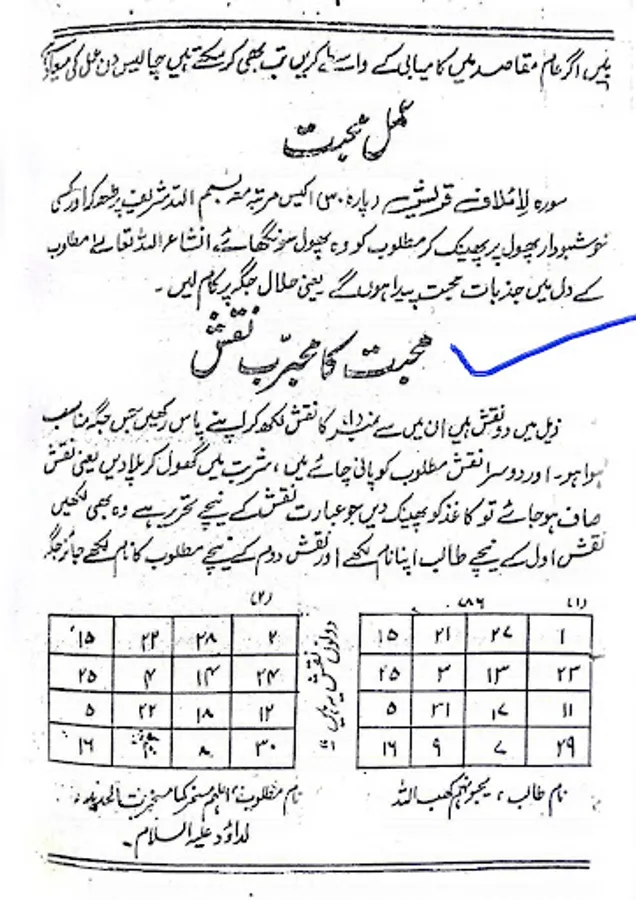 ہیں، اگر عام مقاصد میں کامیابی کے واسطے کریں تب بھی کر سکتے ہیں چالیس دن عمل کی میعاد
عمل محبت
سورہ لِاِیْلَافِ قُرَیْشٍ (پارہ ۳۰) اکیس مرتبہ مع بسم اللہ شریف پڑھ کر اور کسی
خوشبودار پھول پر پھینک کر مطلوب کو وہ پھول سونگھائے انشاء اللہ تعالےٰ مطلوب
کے دل میں جذبات محبت پیدا ہوں گے یعنی حلال جگہ پر کام لیں۔
محبت کا مجرّب نقش
ذیل میں دو نقش ہیں ان میں سے نمبر (۱) کا نقش لکھ کر اپنے پاس رکھیں جس جگہ مناسب
ہوا ہو۔ اور دوسرا نقش مطلوب کو پانی چائے میں، شربت میں گھول کر پلا دیں یعنی نقش
صاف ہو جائے تو کاغذ کو پھینک دیں جو عبارت نقش کے نیچے تحریر ہے وہ بھی لکھیں
نقش اول کے نیچے طالب اپنا نام لکھے اور نقش دوم کے نیچے مطلوب کا نام لکھے جائز جگہ
(۱) ۷۸۶
۱ ۲۷ ۲۱ ۱۵
۲۳ ۱۳ ۳ ۲۵
۱۱ ۱۷ ۲۱ ۵
۲۹ ۷ ۹ ۱۶
نام طالب، یحبونہم کحب اللہ
دونوں نقش یہ ہیں
(۲)
۲ ۲۸ ۲۲ ۱۵
۲۴ ۱۴ ۴ ۲۵
۱۲ ۱۸ ۲۲ ۵
۳۰ ۸ ۱۰ ۱۶
نام مطلوب، سخر کما سخرت الحدید
لداؤد علیہ السلام۔